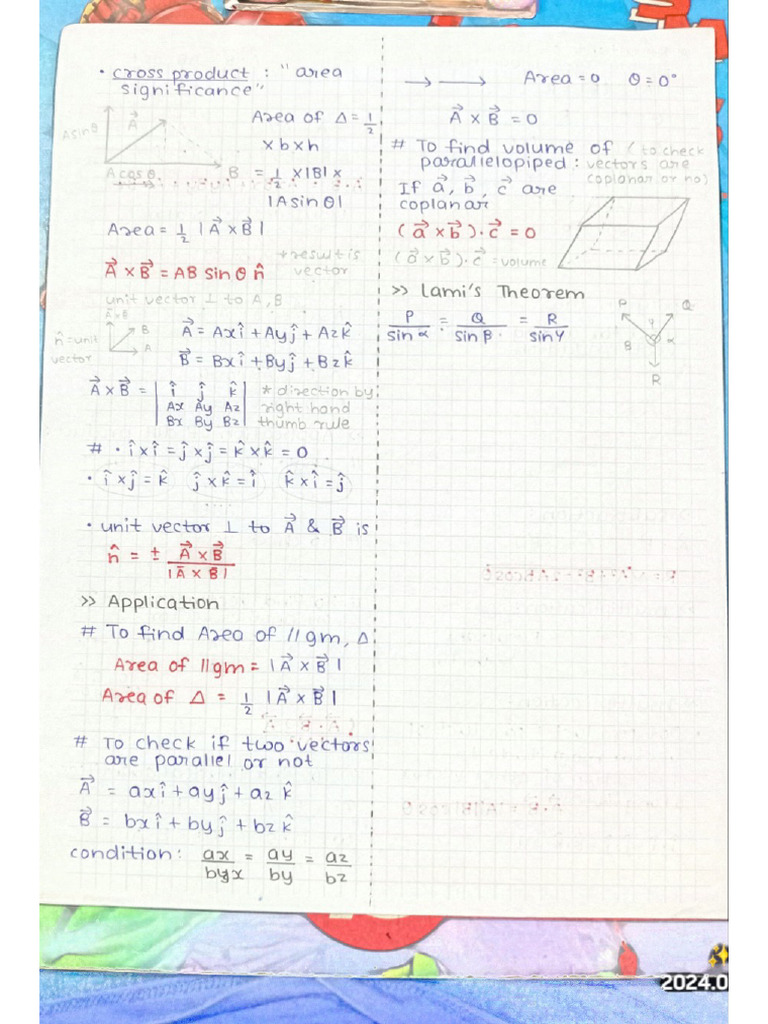 • cross product : "area
significance"
A⃗
Asinθ
Acosθ
B
Area of Δ = 1/2
× b × h
= 1/2 × |B| ×
|A sin θ|
Area = 1/2 |A⃗ × B⃗|
A⃗ × B⃗ = AB sin θ n̂
* result is
vector
unit vector ⊥ to A, B
A⃗×B⃗
n̂ = unit
vector
B
A
A⃗ = Axî + Ayĵ + Azk̂
B⃗ = Bxî + Byĵ + Bzk̂
A⃗ × B⃗ = | î ĵ k̂ |
| Ax Ay Az |
| Bx By Bz |
* direction by
right hand
thumb rule
# • î × î = ĵ × ĵ = k̂ × k̂ = 0
• î × ĵ = k̂ ĵ × k̂ = î k̂ × î = ĵ
• unit vector ⊥ to A⃗ & B⃗ is
n̂ = ± A⃗ × B⃗ / |A̅ × B̅|
>> Application
# To find Area of //gm, Δ
Area of ||gm = |A⃗ × B⃗|
Area of Δ = 1/2 |A⃗ × B⃗|
# To check if two vectors
are parallel or not
A⃗ = axî + ayĵ + az k̂
B⃗ = bxî + byĵ + bz k̂
condition: ax/bx = ay/by = az/bz
→ → Area = 0 θ = 0°
A⃗ × B⃗ = 0
# To find volume of (to check
parallelopiped : vectors are
coplanar or no)
If a⃗, b⃗, c⃗ are
coplanar
(a⃗ × b⃗)·c⃗ = 0
(a⃗ × b⃗)·c⃗ = volume
>> Lami's Theorem
P/sin α = Q/sin β = R/sin γ
P
Q
γ
β
α
R
2024.0